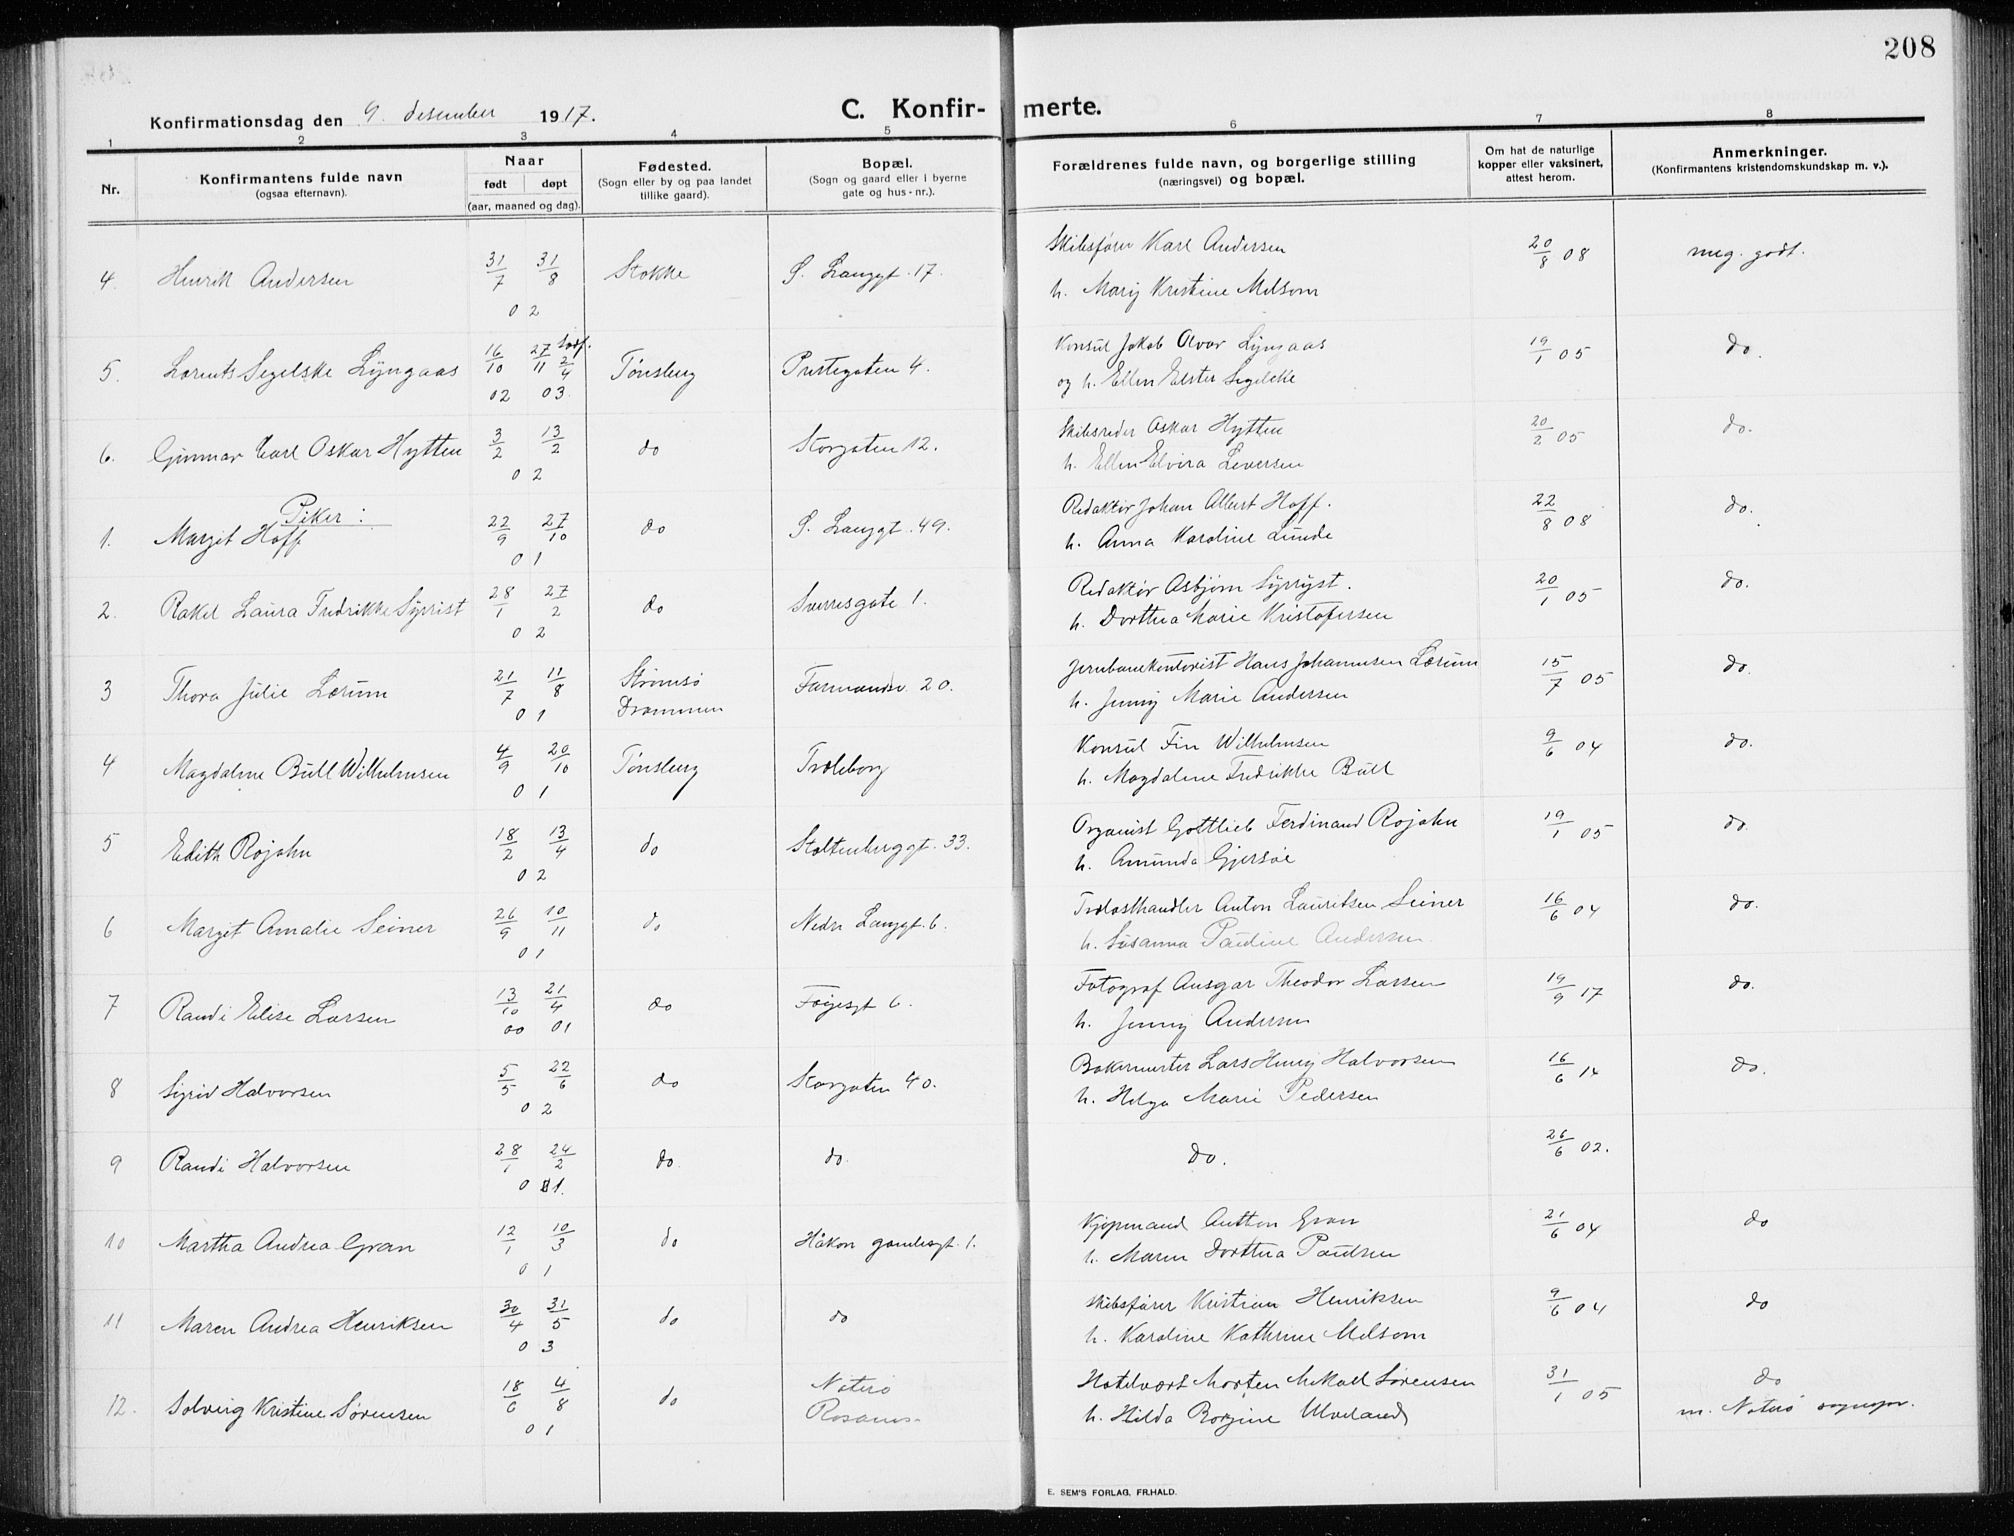 208
Konfirmationsdag den 9. desember 1917. C. Konfir- merte.
1 2 3 4 5 6 7 8
Nr.
Konfirmantens fulde navn
(ogsaa efternavn).
Naar
født døpt
(aar, maaned og dag).
Fødested.
(Sogn eller by og paa landet
tillike gaard).
Bopæl.
(Sogn og gaard eller i byerne
gate og hus-nr.).
Forældrenes fulde navn, og borgerlige stilling
(næringsvei) og bopæl.
Om hat de naturlige
kopper eller vaksinert,
attest herom.
Anmerkninger.
(Konfirmantens kristendomskundskap m. v.).
4. Henrik Andersen 31/7 31/8 02 Stokke S. Langgt. 17.
Skibsfører Karl Andersen
h. Mary Kristine Melsom
20/8 08 meg. godt.
5. Lorents Segelske Lyngaas 16/10 02 27/11 2/4 03 Tønsberg Prestegaten 4.
Konsul Jakob Alvar Lyngaas
og h. Ellen Elster Segelcke
19/1 05 do.
6. Gunnar Carl Oskar Hytten 3/2 13/2 02 do Storgaten 12.
Skibsreder Oskar Hytten
h. Ellen Elvira Leversen
20/2 05 do.
Piker:
1. Margit Hoff 22/9 27/10 01 do S. Langgt. 49.
Redaktør Johan Albert Hoff.
h. Anna Karoline Lunde
22/8 08 do.
2. Rakel Laura Fredrikke Syrrist 28/1 27/2 02 do Sverresgate 1.
Redaktør Asbjørn Syrryst.
h. Dorthea Marie Kristofersen
20/1 05 do.
3 Thora Julie Lærum 21/7 11/8 01 Strømsø
Drammen
Farmandsv. 20.
Jernbanekontorist Hans Johannesen Lærum
h. Jenny Marie Andersen
15/7 05 do
4 Magdalene Bull Wilhelmsen 4/9 20/10 01 Tønsberg Træleborg
Konsul Fin Wilhelmsen
h. Magdalene Fredrikke Bull
9/6 04 do.
5 Edith Rojahn 18/2 13/4 02 do Stoltenberggt. 33.
Organist Gottlieb Ferdinand Rojahn
h. Amunda Gjersøe
19/1 05 do
6 Margit Amalie Seiner 26/9 10/11 01 do Nedre Langgt. 6.
Trælasthandler Anton Lauritsen Seiner
h. Susanna Pauline Andersen
16/6 04 do.
7 Randi Elise Larsen 13/10 00 21/4 01 do Føyesgt 6.
Fotograf Ansgar Theodor Larsen
h. Jenny Andersen
19/9 17 do.
8 Sigrid Halvorsen 5/5 22/6 02 do Storgaten 40.
Bakermester Lars Henry Halvorsen
h. Helga Marie Pedersen
16/6 14 do.
9 Randi Halvorsen 28/1 24/2 01. do. do.
do.
26/6 02.
10 Martha Andrea Gran 12/1 10/3 01 do Håkon gamlesgt. 1.
Kjøpmand Anthon Gran
h. Maren Dorthea Paulsen
21/6 04 do
11 Maren Andrea Henriksen 30/4 31/5 03 do do
Skibsfører Kristian Henriksen
h. Karoline Kathrine Melsom
9/6 04 do
12. Solveig Kristine Sørensen 18/6 4/8 01 do Nøterø
Hotelvært Morten Mikael Sørensen
h. Hilda Borgine Ulveland
31/1 05 do
m. Nøterø sognepr.
E. SEM'S FORLAG, FR.HALD.